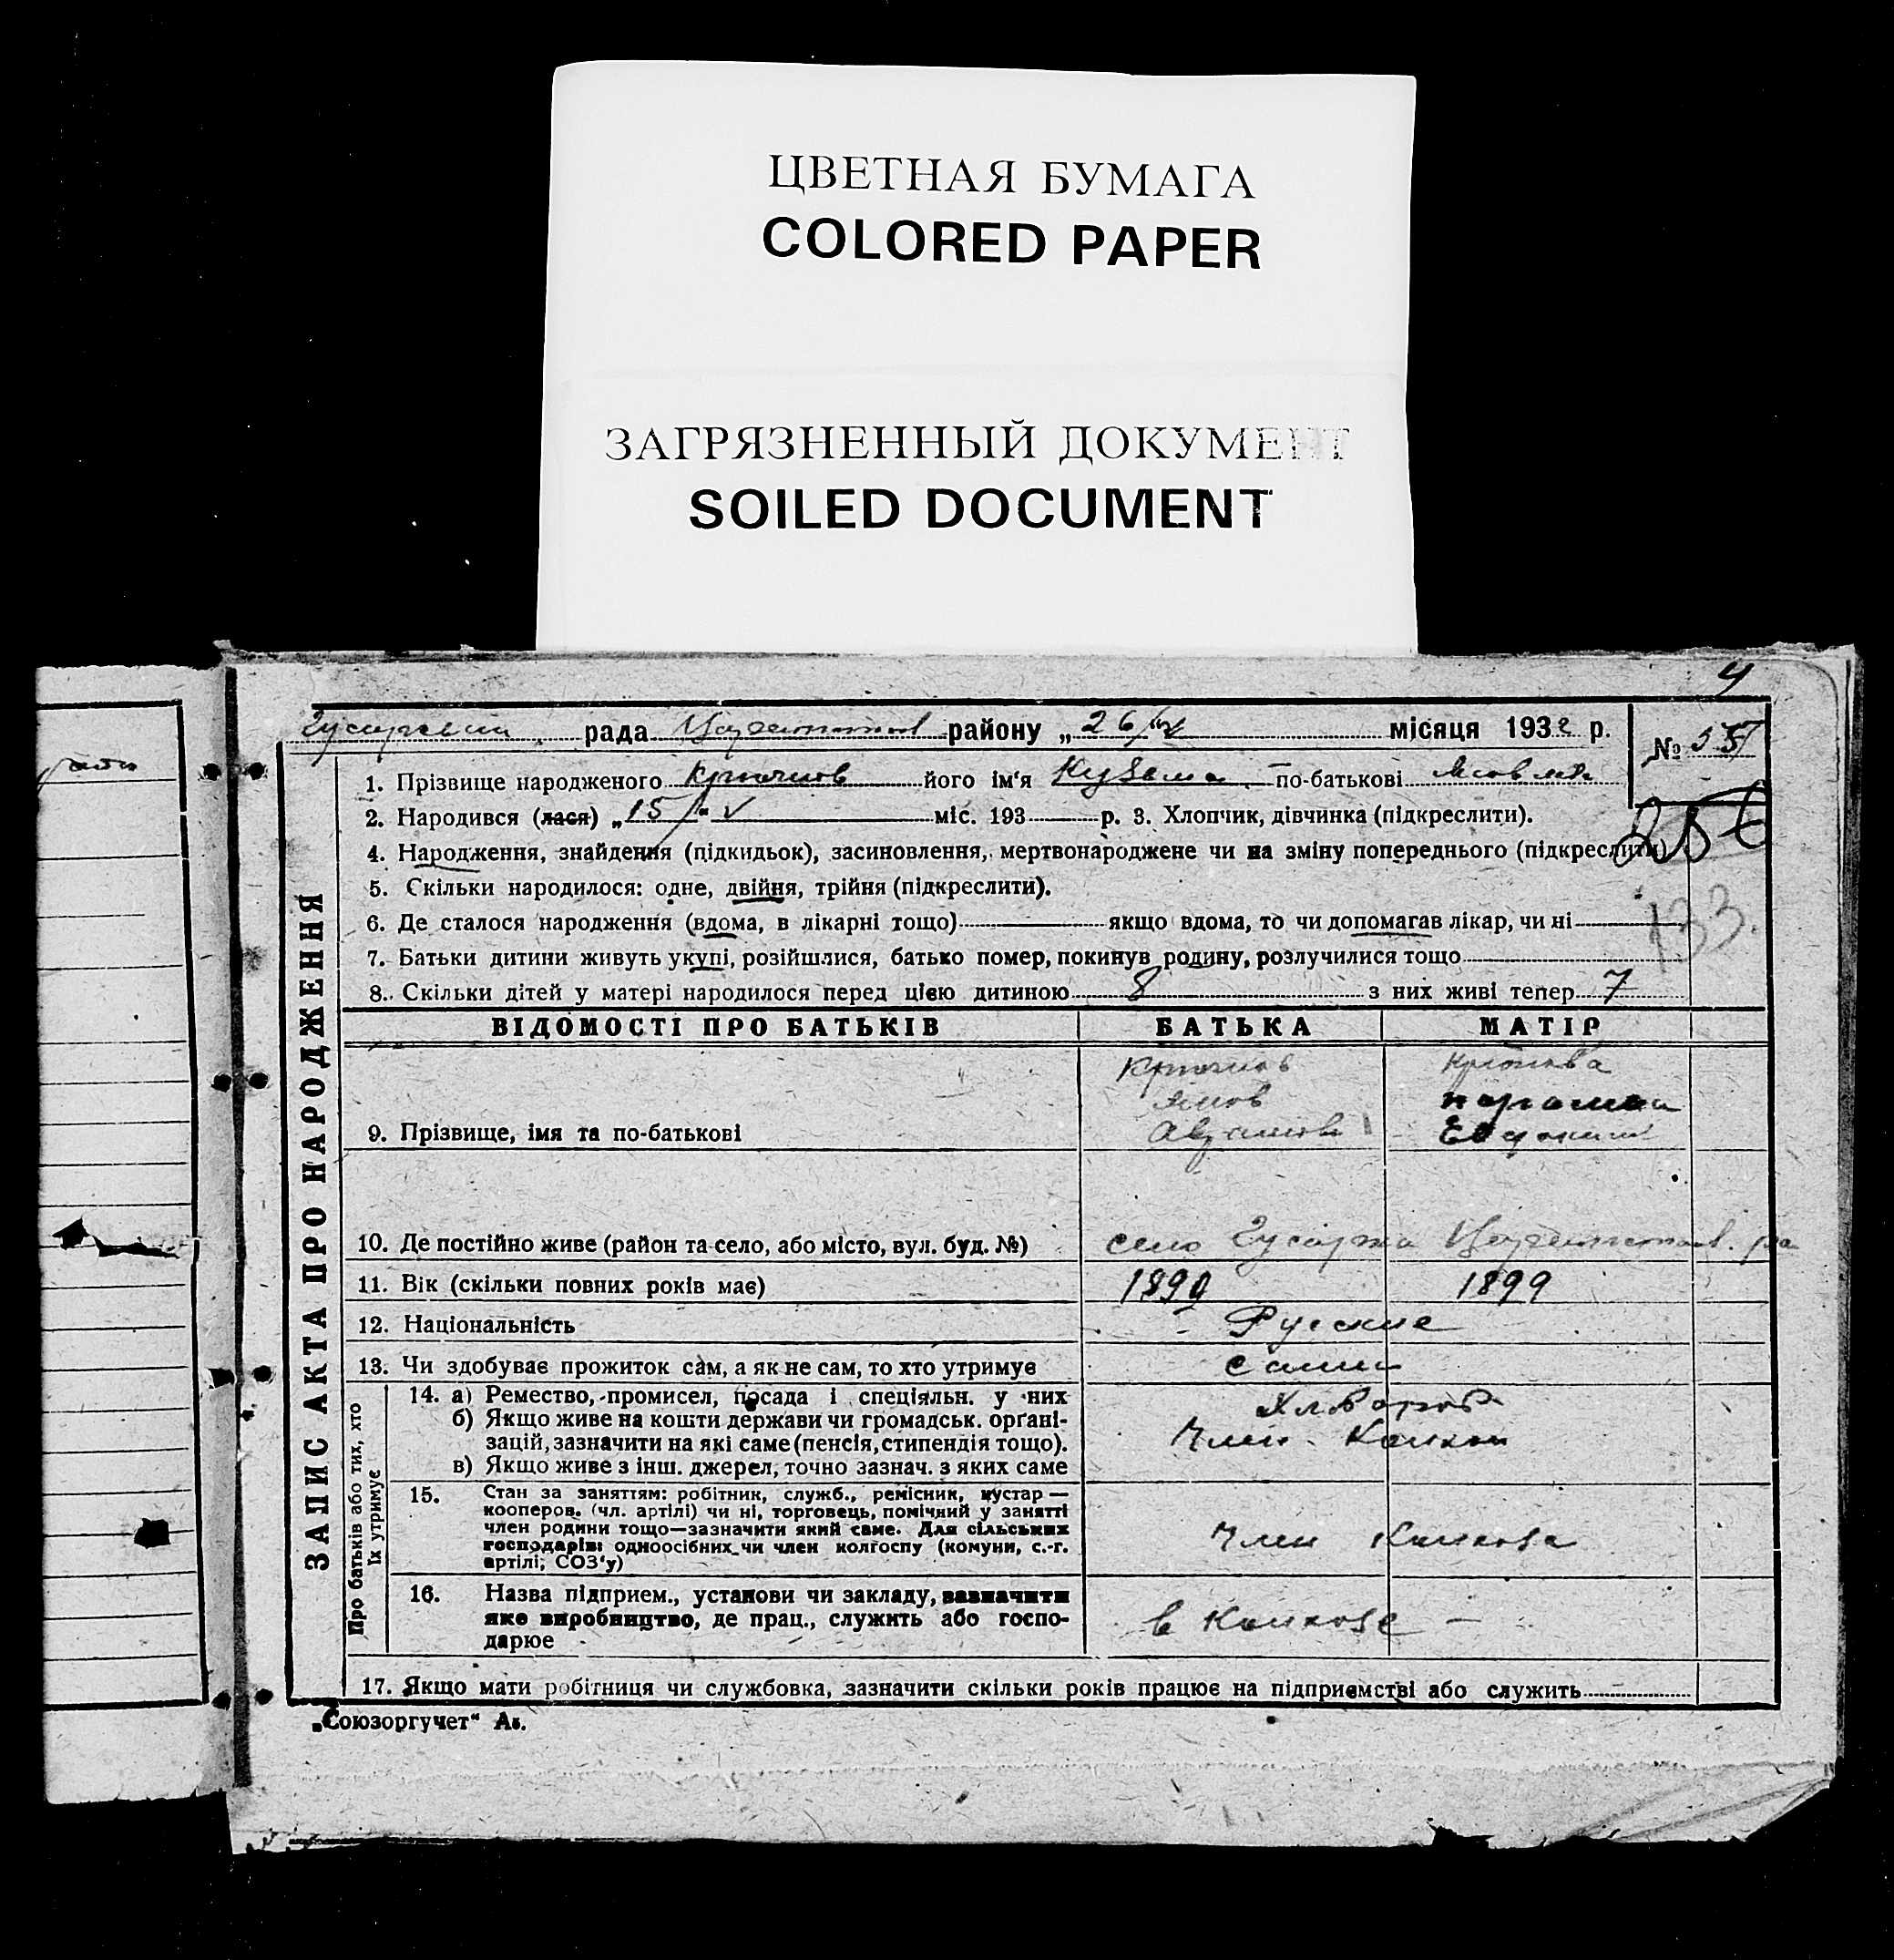 ЦВЕТНАЯ БУМАГА
COLORED PAPER
ЗАГРЯЗНЕННЫЙ ДОКУМЕНТ
SOILED DOCUMENT
4
рада району „26/ місяця 1932 р.
№ 55
1. Прізвище народженого Крючков його ім‘я Кузьма по-батькові
2. Народився (лася) „15/“ V міс. 193 р. 3. Хлопчик, дівчинка (підкреслити).
256
4. Народження, знайдення (підкидьок), засиновлення, мертвонароджене чи на зміну попереднього (підкреслити)
5. Скільки народилося: одне, двійня, трійня (підкреслити).
133.
6. Де сталося народження (вдома, в лікарні тощо) якщо вдома, то чи допомагав лікар, чи ні
7. Батьки дитини живуть укупі, розійшлися, батько помер, покинув родину, розлучилися тощо
8. Скільки дітей у матері народилося перед цією дитиною 8 з них живі тепер 7
ЗАПИС АКТА ПРО НАРОДЖЕННЯ
ВІДОМОСТІ ПРО БАТЬКІВ БАТЬКА МАТІР
Крючков
Яков
9. Прізвище, імя та по-батькові
10. Де постійно живе (район та село, або місто, вул. буд. №) село
11. Вік (скільки повних років має) 1890 1899
12. Національність Русские
13. Чи здобуває прожиток сам, а як не сам, то хто утримує сами
Про батьків або тих, хто
їх утримує
14. а) Ремество, промисел, посада і спеціяльн. у них
б) Якщо живе на кошти держави чи громадськ. орґані-
зацій, зазначити на які саме (пенсія, стипендія тощо).
Член
в) Якщо живе з інш. джерел, точно зазнач. з яких саме
15. Стан за заняттям: робітник, служб., ремісник, кустар —
кооперов. (чл. артілі) чи ні, торговець, помічний у занятті
член родини тощо—зазначити який саме. Для сільських
господарів: одноосібних чи член колгоспу (комуни, с.-г.
артілі, СОЗ‘у)
Член Колхоза
16. Назва підприєм., установи чи закладу, зазначити
яке виробництво, де прац., служить або госпо-
дарює
в Колхозе —
17. Якщо мати робітниця чи службовка, зазначити скільки років працює на підприємстві або служить
„Союзоргучет“ Аз.